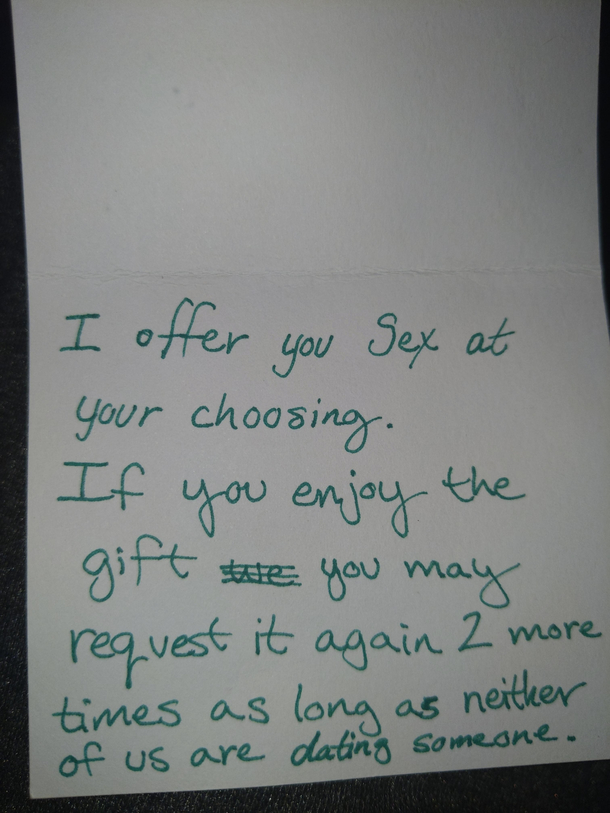 I offer you Sex at
your choosing.
If you enjoy the
gift you may
request it again 2 more
times as long as neither
of us are dating someone.